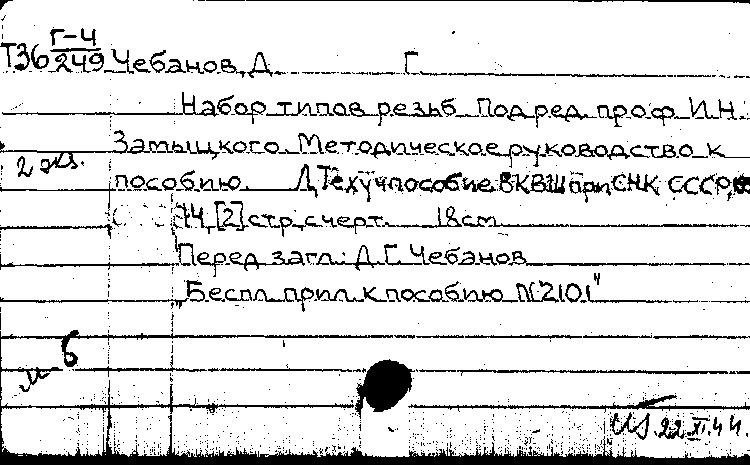 Г-4
Т36 249 Чебанов, Д. Г.
Набор типов резьб. Под ред. проф. И.Н.
Замыцкого. Методическое руководство к
2 экз.
пособию. Л, Техучпособие ВКВШ при СНК СССР,
14, [2] стр. с черт. 18см
Перед загл.: Д.Г. Чебанов
"Беспл. прил. к пособию №2101"
м-б
22.XI.44.